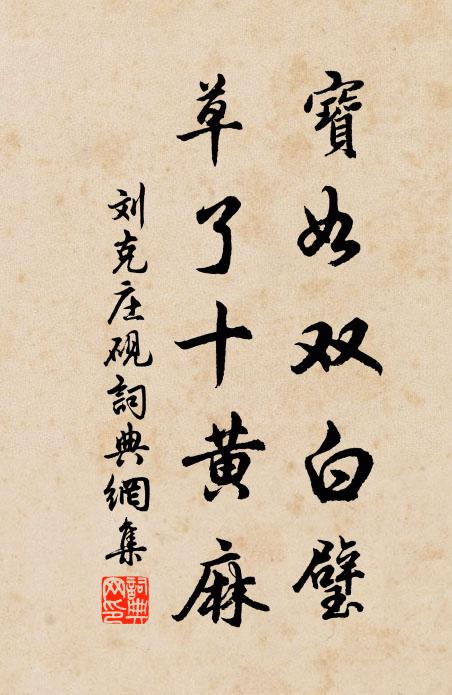 寶如双白璧
草了十黄麻
刘克庄砚詞典網集
詞典網印